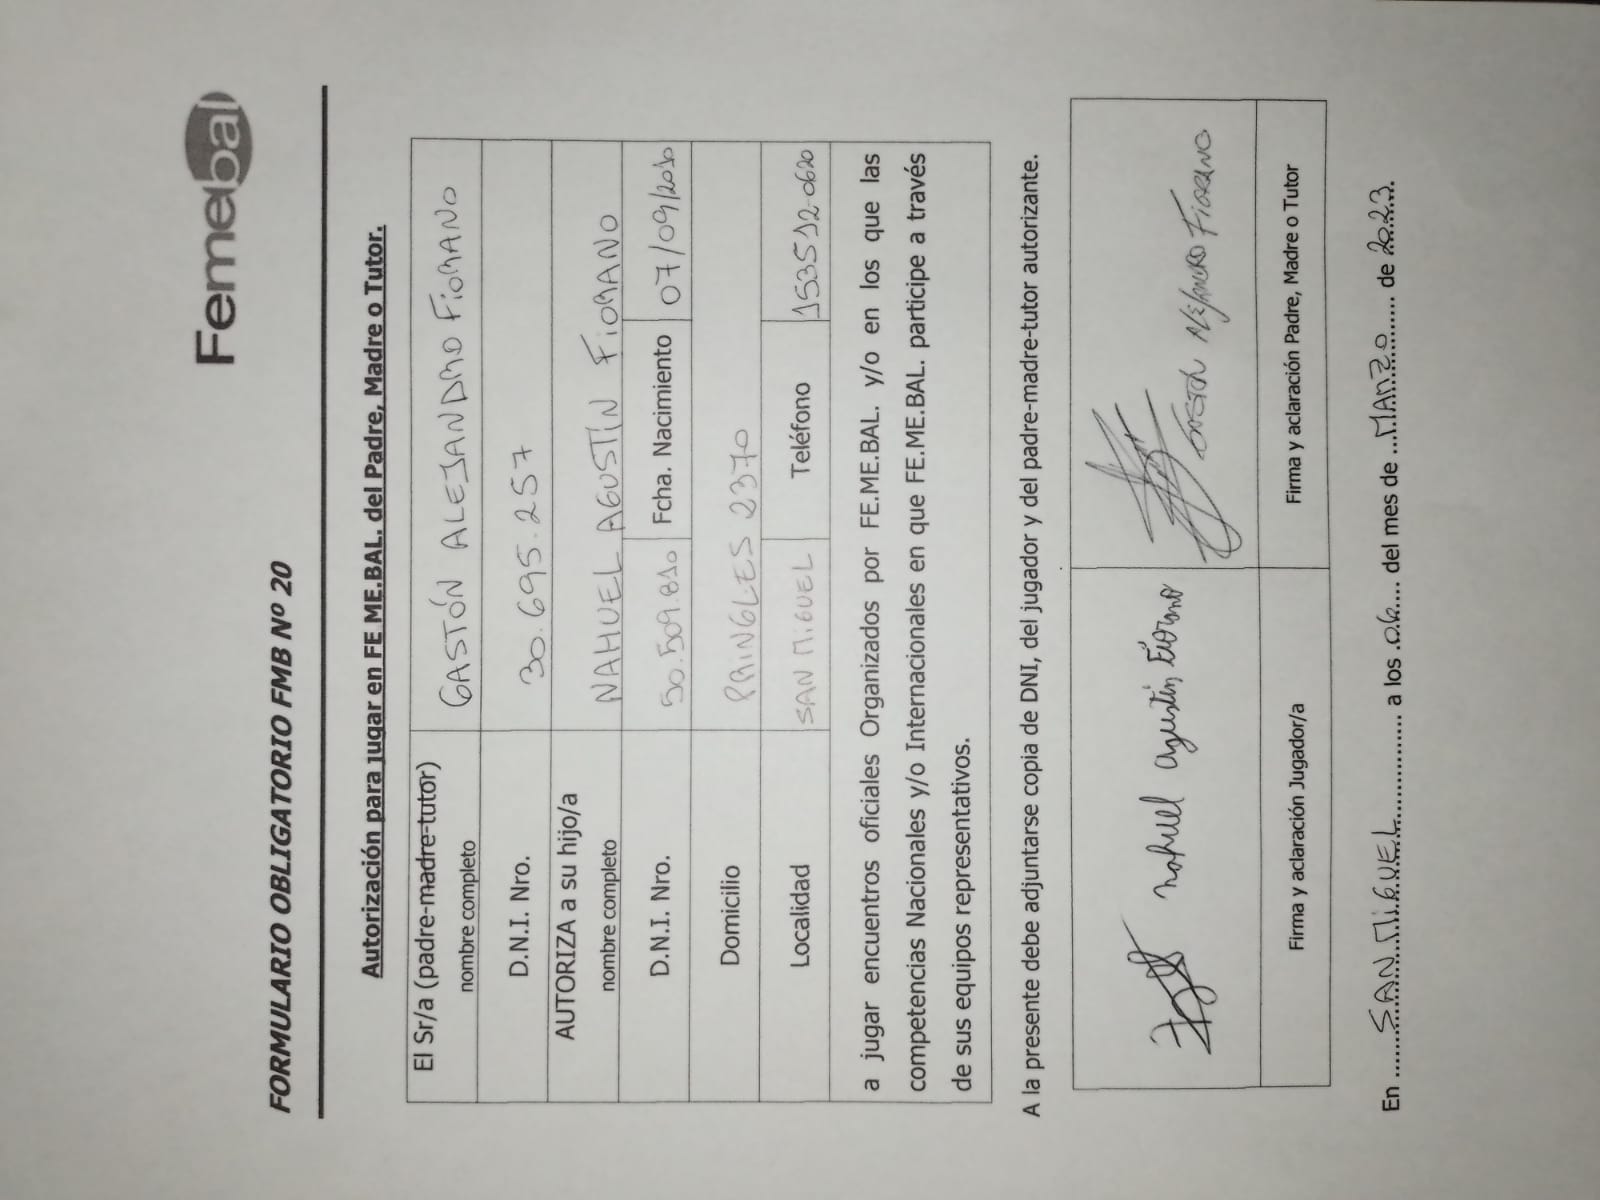 Femebal
FORMULARIO OBLIGATORIO FMB Nº 20
Autorización para jugar en FE ME.BAL. del Padre, Madre o Tutor.
El Sr/a (padre-madre-tutor)
nombre completo
GASTÓN ALEJANDRO FIORANO
D.N.I. Nro.
30.695.257
AUTORIZA a su hijo/a
nombre completo
NAHUEL AGUSTÍN FIORANO
D.N.I. Nro.
50.509.810
Fcha. Nacimiento
07/09/2010
Domicilio
PRINGLES 2370
Localidad
SAN MIGUEL
Teléfono
153512-0620
a jugar encuentros oficiales Organizados por FE.ME.BAL. y/o en los que las
competencias Nacionales y/o Internacionales en que FE.ME.BAL. participe a través
de sus equipos representativos.
A la presente debe adjuntarse copia de DNI, del jugador y del padre-madre-tutor autorizante.
Nahuel Agustín Fiorano
GASTON ALEJANDRO FIORANO
Firma y aclaración Jugador/a
Firma y aclaración Padre, Madre o Tutor
En SAN MIGUEL a los del mes de MARZO de 2023.